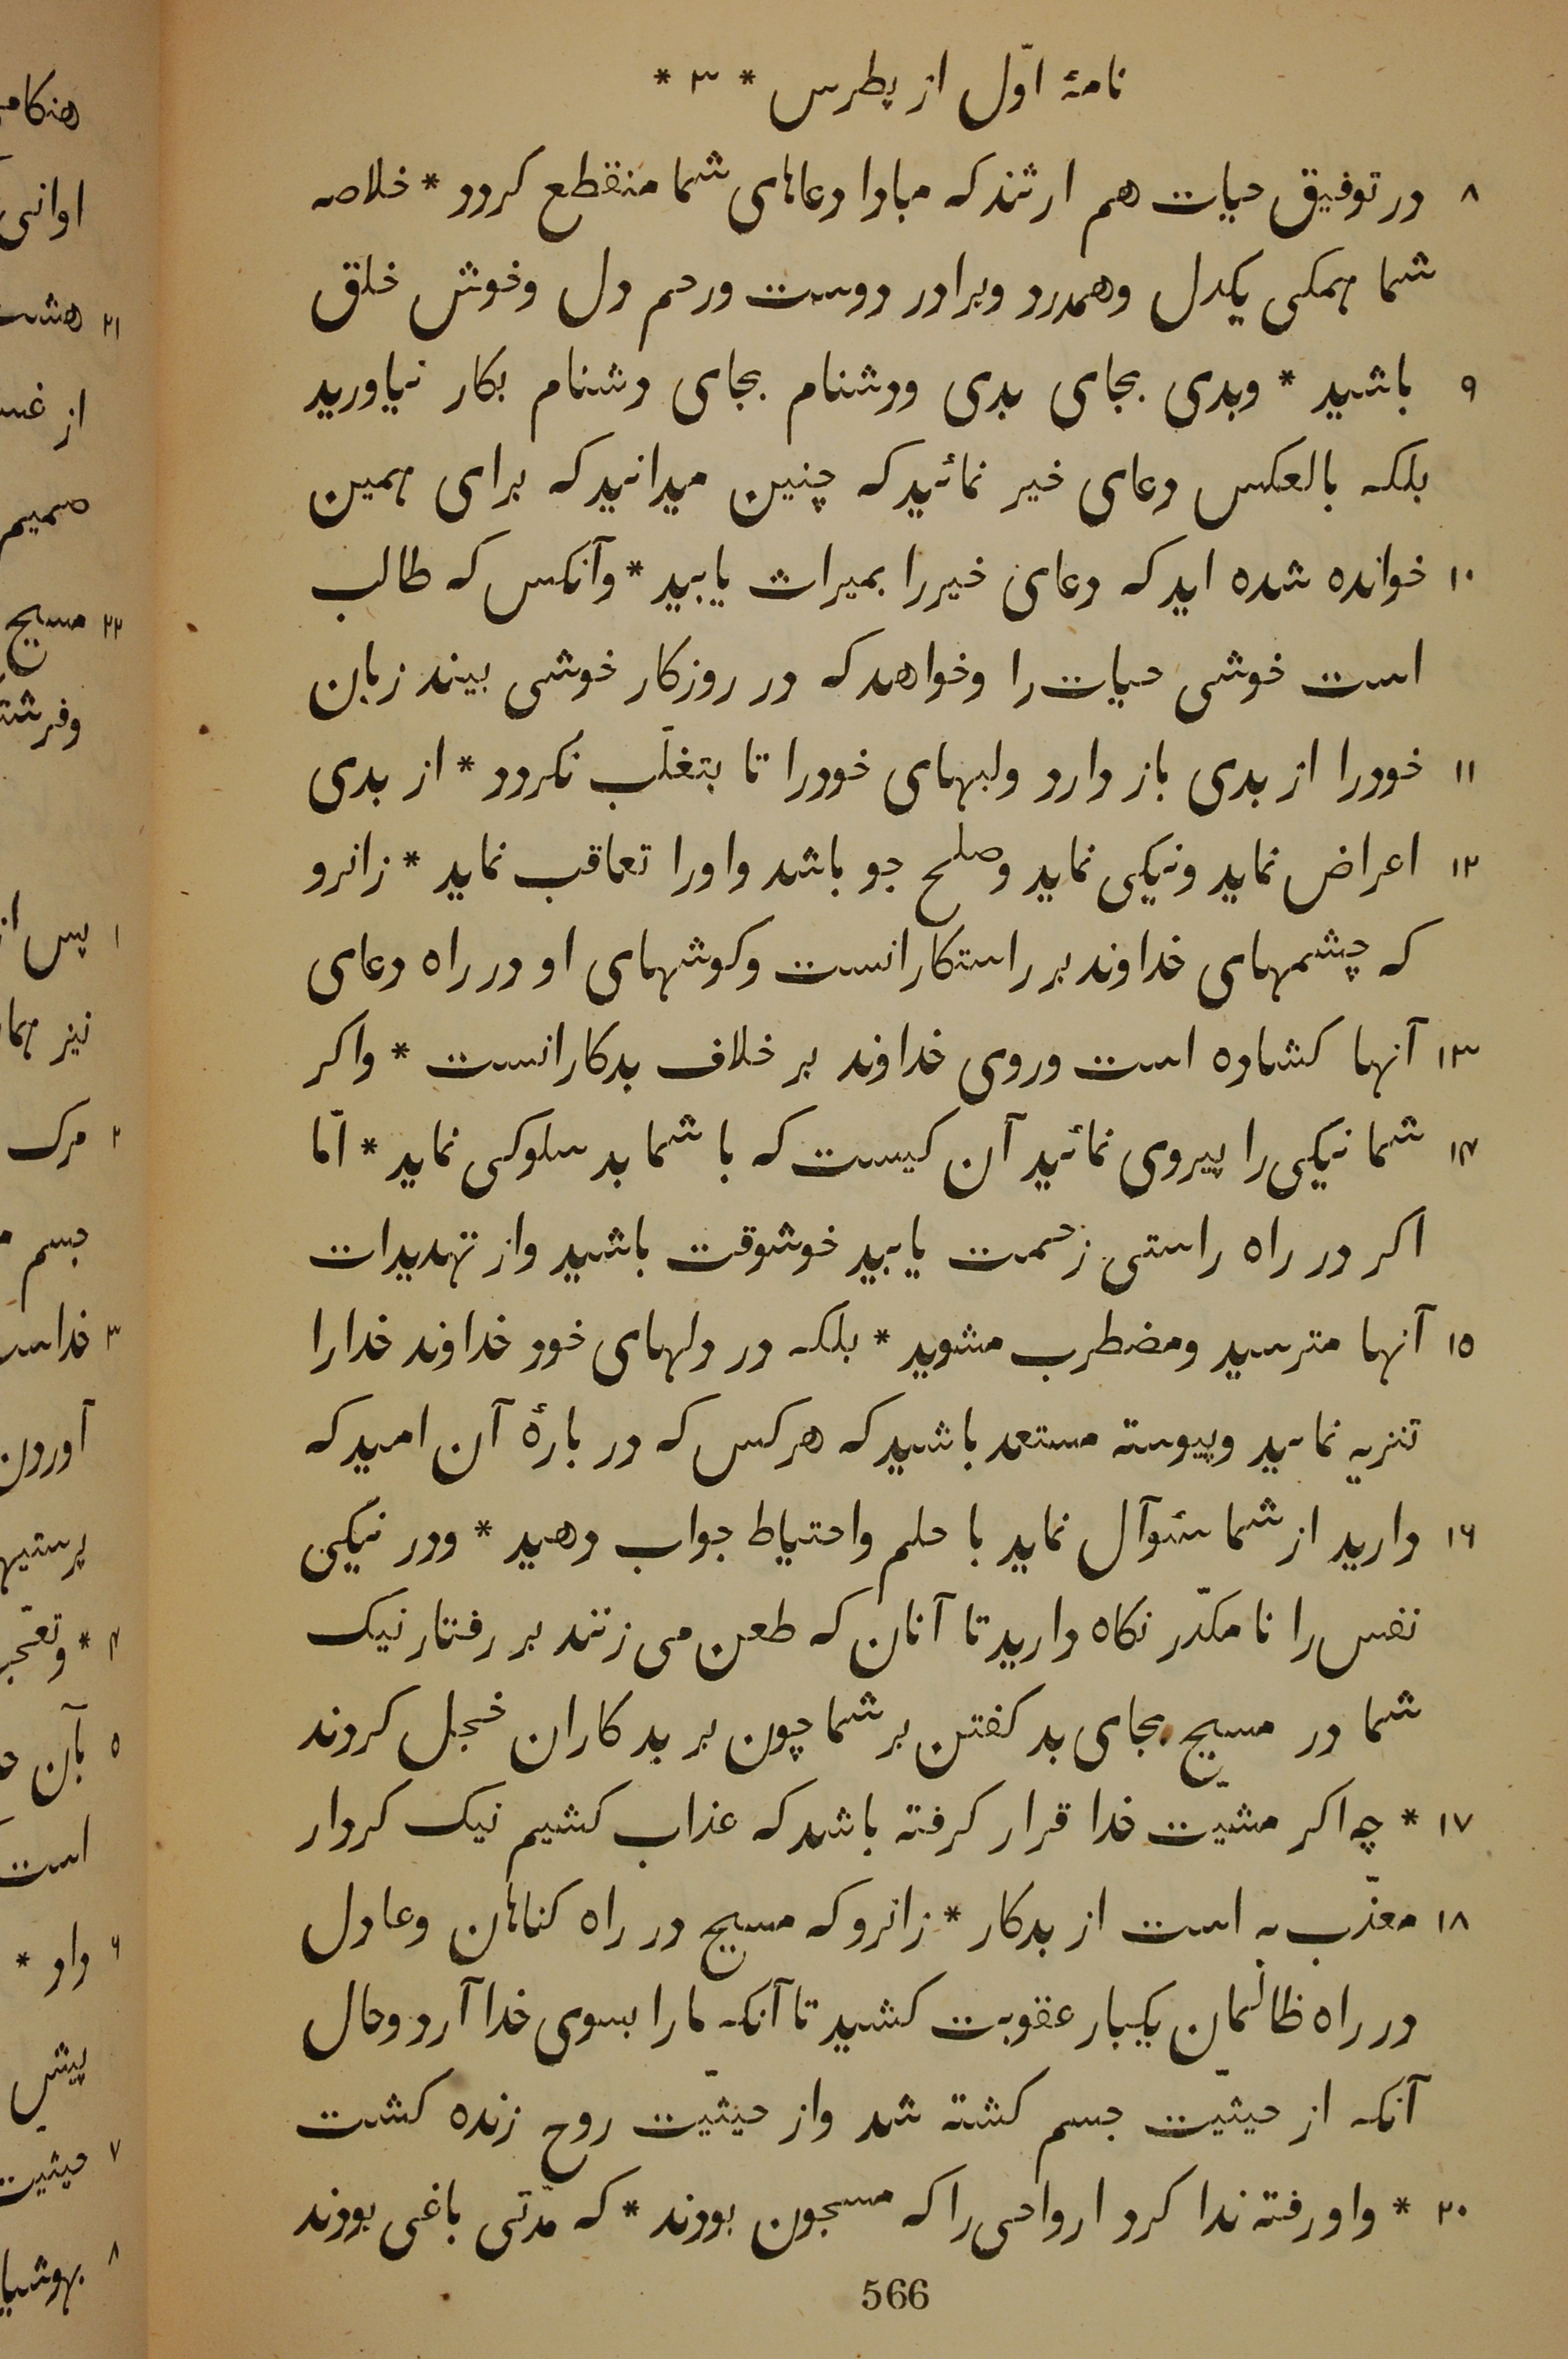 نامهٔ اوّل از پطرس * ۳ *
۸ در توفیق حیات هم ارثند که مبادا دعاهای شما منقطع کردد * خلاصه
شما همکی یکدل وهمدرد وبرادر دوست ورحم دل وخوش خلق
۹ باشید * وبدی بجای بدی ودشنام بجای دشنام بکار نیاورید
بلکه بالعکس دعای خیر نمائید که چنین میدانید که برای همین
۱۰ خوانده شده اید که دعای خیررا بمیراث یابید * وآنکس که طالب
است خوشی حیات را وخواهد که در روزکار خوشی بیند زبان
۱۱ خودرا از بدی باز دارد ولبهای خودرا تا بتغلّب نکردد * از بدی
۱۲ اعراض نماید ونیکی نماید وصلح جو باشد واورا تعاقب نماید * زانرو
که چشمهای خداوند بر راستکارانست وکوشهای او در راه دعای
۱۳ آنها کشاده است وروی خداوند بر خلاف بدکارانست * واکر
۱۴ شما نیکی را پیروی نمائید آن کیست که با شما بد سلوکی نماید * امّا
اکر در راه راستی زحمت یابید خوشوقت باشید واز تهدیدات
۱۵ آنها مترسید ومضطرب مشوید * بلکه در دلهای خود خداوند خدارا
تنزیه نمایید وپیوسته مستعد باشید که هرکس که در بارهٔ آن امید که
۱۶ دارید از شما سئوآل نماید با حلم واحتیاط جواب دهید * ودر نیکی
نفس را نا مکدّر نکاه دارید تا آنان که طعن می زنند بر رفتار نیک
شما در مسیح بجای بد کفتن بر شما چون بر بد کاران خجل کردند
۱۷ * چه اکر مشیّت خدا قرار کرفته باشد که عذاب کشیم نیک کردار
۱۸ معذّب به است از بدکار * زانرو که مسیح در راه کناهان وعادل
در راه ظالمان یکبار عقوبت کشید تا آنکه مارا بسوی خدا آرد وحال
آنکه از حیثیّت جسم کشته شد واز حیثیّت روح زنده کشت
۲۰ * واو رفته ندا کرد ارواحی را که مسجون بودند * که مدّتی باغی بودند
566
هنکام
اوانی
۲۱ هشت
از غس
صمیم
۲۲ مسیح
وفرشت
۱ پس از
نیز هما
۲ مرک
جسم
۳ خداس
آوردن
پرستیه
۴ * وتعجّب
۵ بآن
است
۶ داد *
پیش
۷ حیثیت
۸ بهوشیا